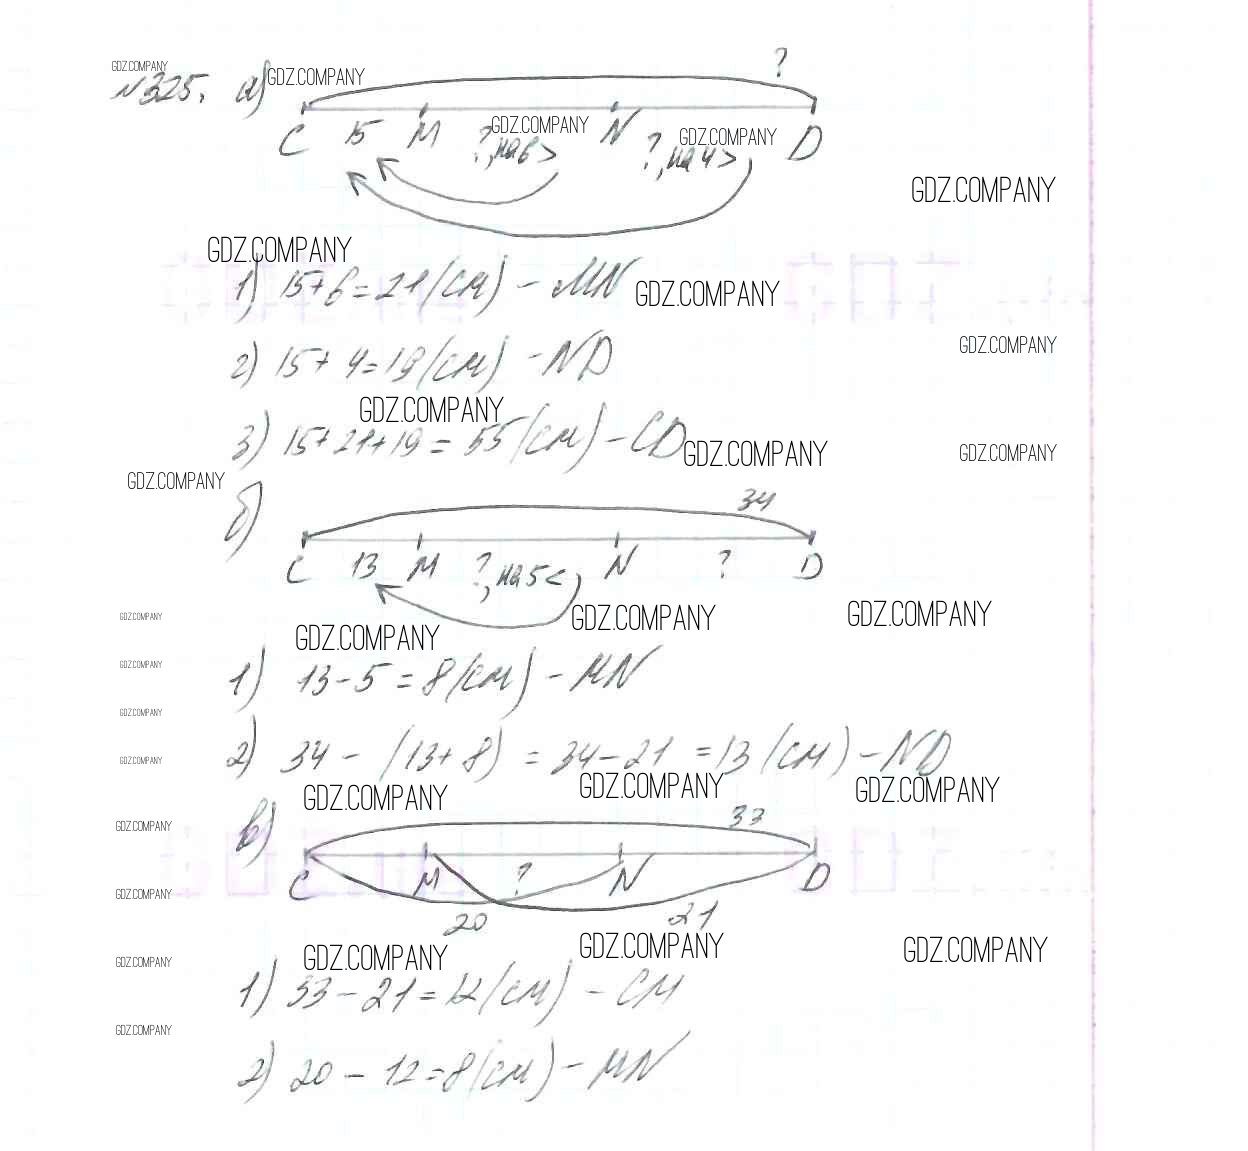 GDZ.COMPANY
№325. а) GDZ.COMPANY ?
C 15 M ?, на 6 > GDZ.COMPANY N ?, на 4 > GDZ.COMPANY D
GDZ.COMPANY
GDZ.COMPANY
1) 15+6=21(см) - MN GDZ.COMPANY
2) 15+4=19(см) - ND GDZ.COMPANY
GDZ.COMPANY
3) 15+21+19=55(см) - CD GDZ.COMPANY GDZ.COMPANY
GDZ.COMPANY
б) 34
C 13 M ?, на 5 < N ? D
GDZ.COMPANY GDZ.COMPANY GDZ.COMPANY
GDZ.COMPANY
GDZ.COMPANY
1) 13-5=8(см) - MN
GDZ.COMPANY
2) 34-(13+8)=34-21=13(см) - ND
GDZ.COMPANY
GDZ.COMPANY GDZ.COMPANY GDZ.COMPANY
GDZ.COMPANY
в) 33
C M ? N D
GDZ.COMPANY
20 21
GDZ.COMPANY GDZ.COMPANY GDZ.COMPANY
GDZ.COMPANY
1) 33-21=12(см) - CM
GDZ.COMPANY
2) 20-12=8(см) - MN